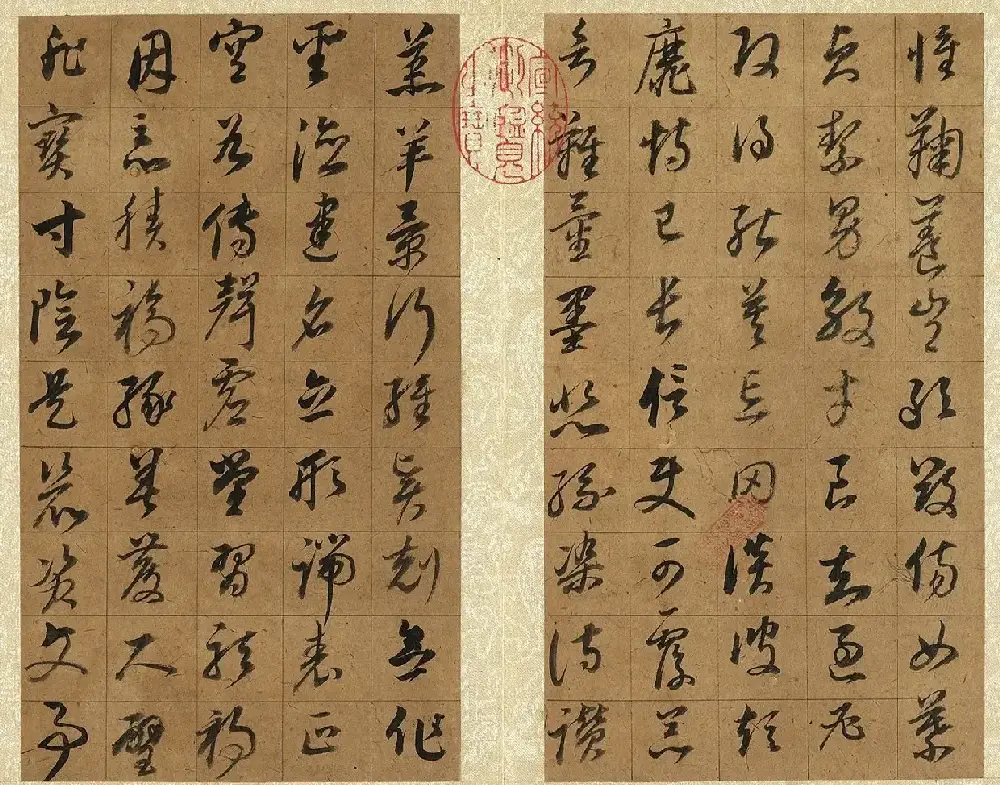 惟鞠養豈敢毀傷女慕
貞絜男效才良知過必
改得能莫忘罔談彼短
靡恃己長信使可覆器
欲難量墨悲絲染詩讚
宣統御覽之寶
羔羊景行維賢剋念作
聖德建名立形端表正
空谷傳聲虛堂習聽禍
因惡積福緣善慶尺璧
非寶寸陰是競資父事